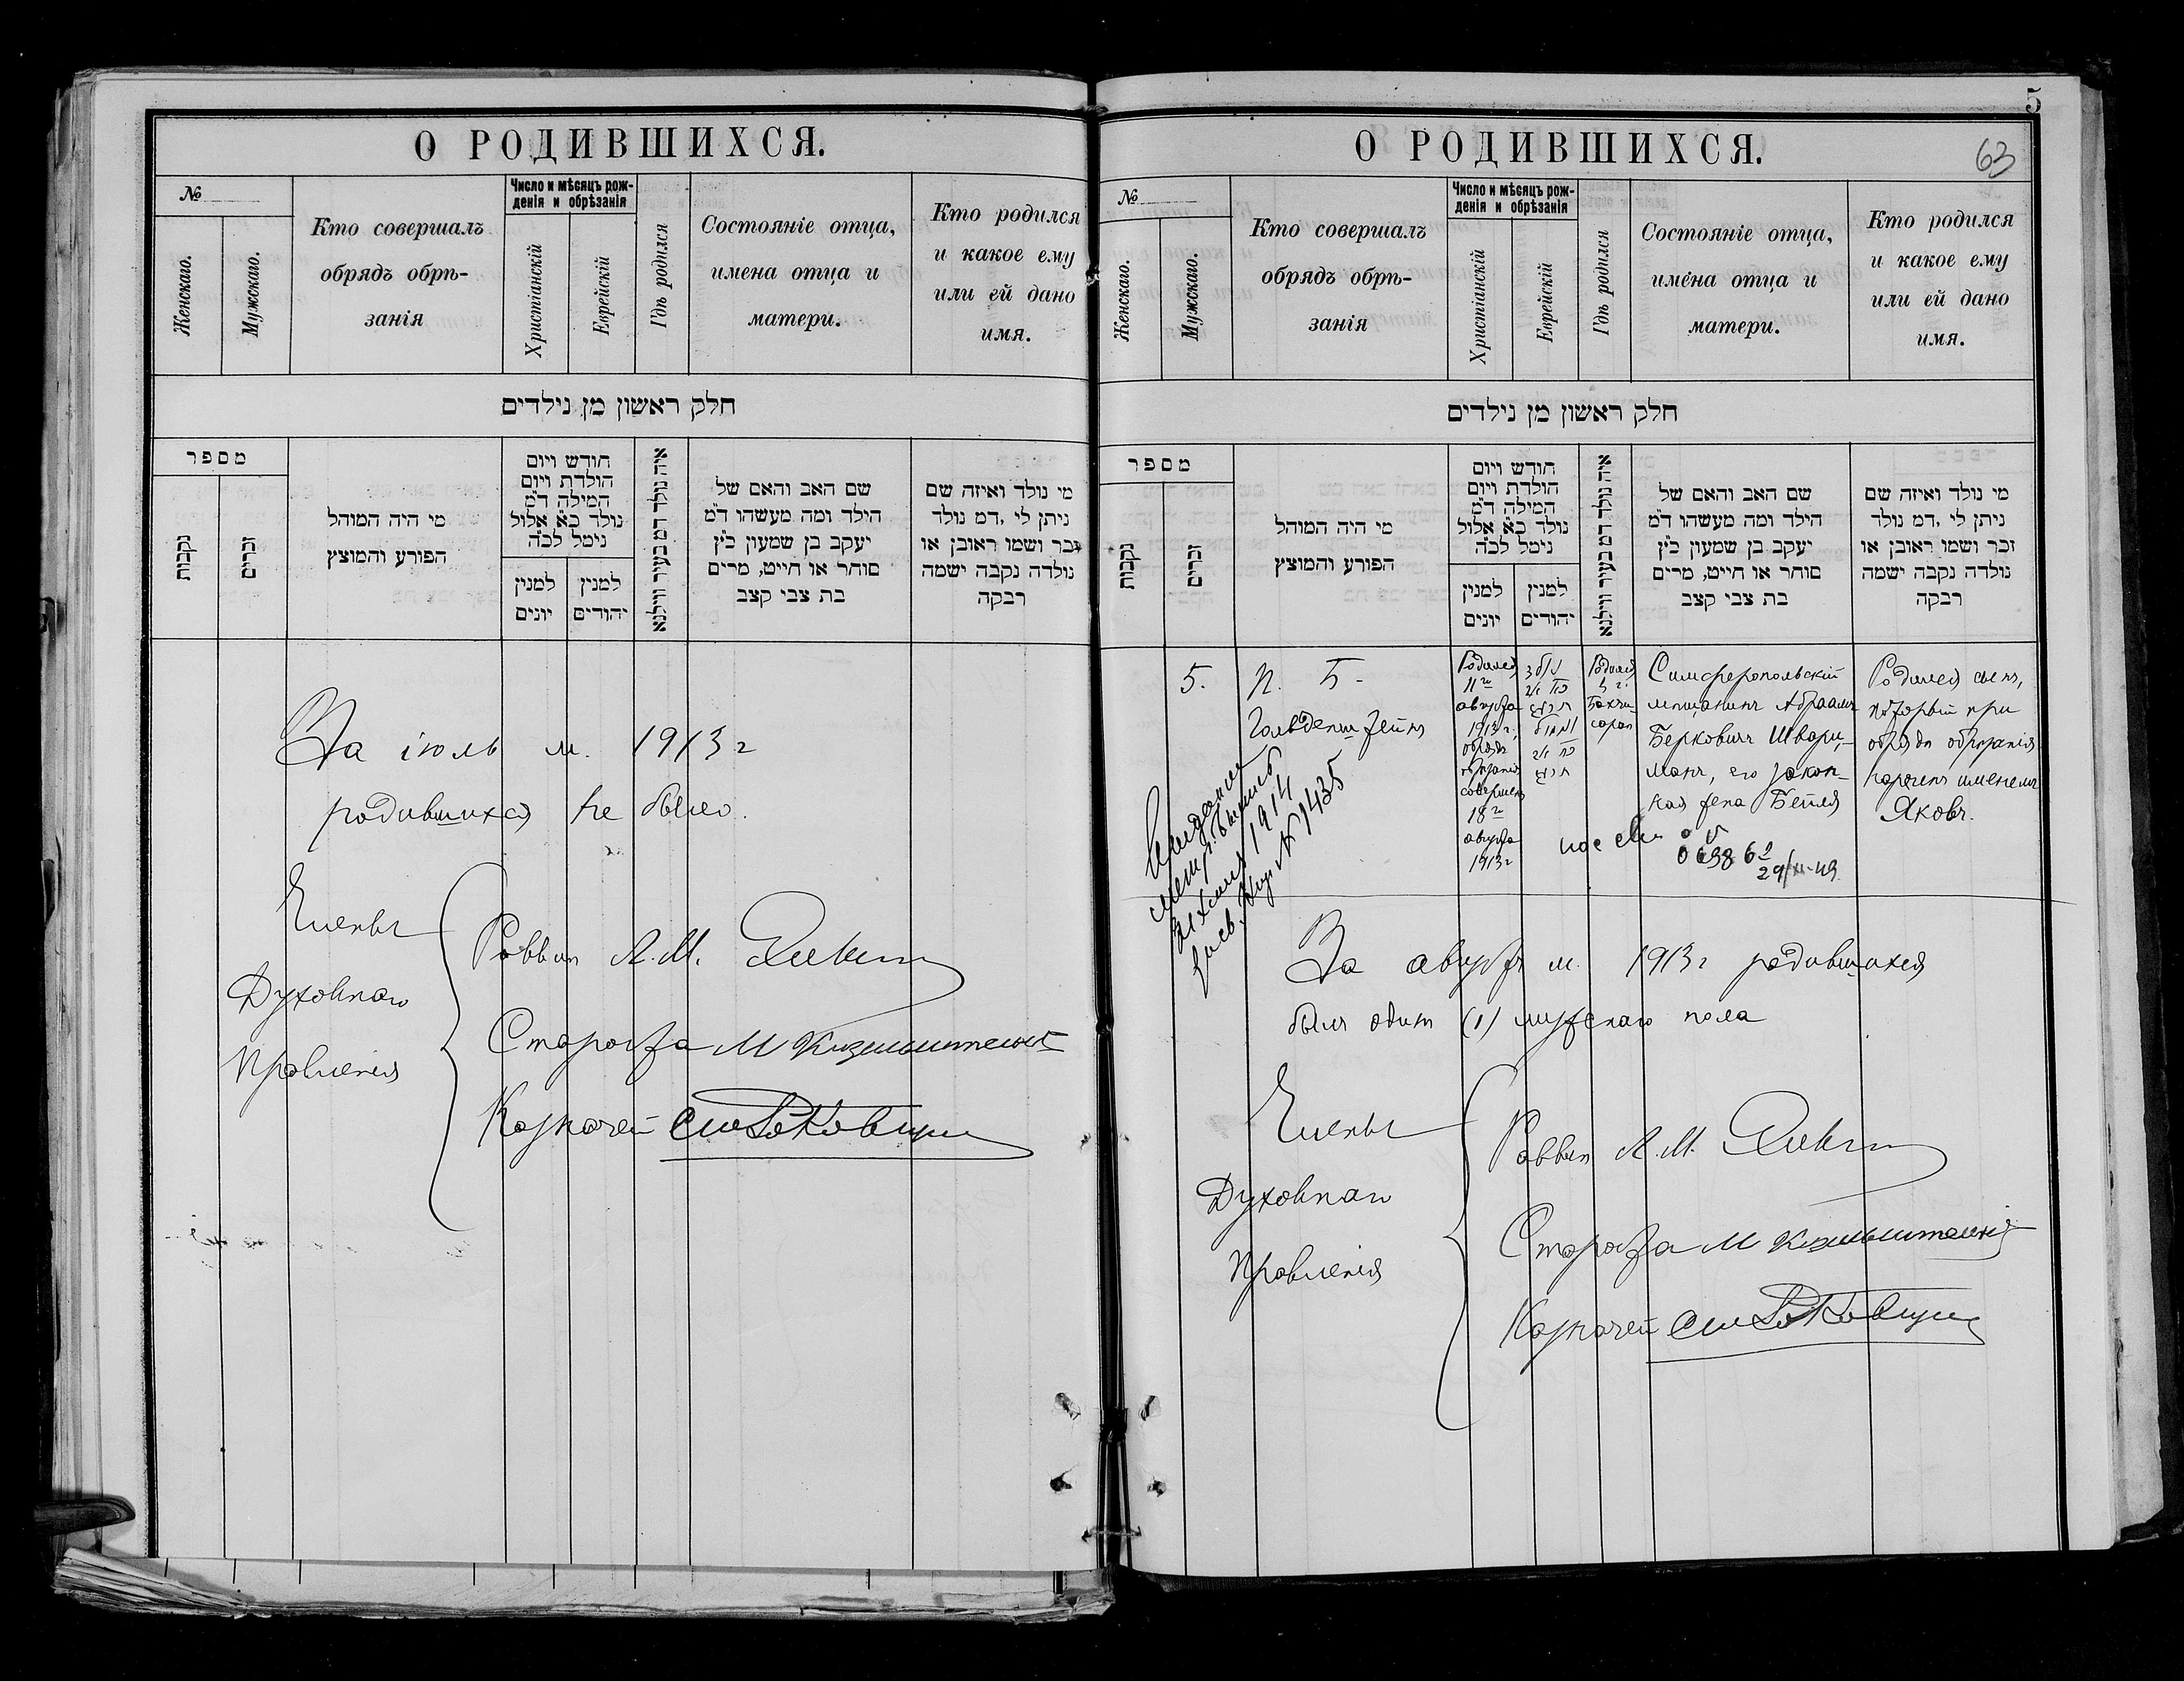 О РОДИВШИХСЯ.
№
Женскаго.
Мужскаго.
Кто совершалъ
обрядъ обрѣ-
занія
Число и мѣсяцъ рож-
денія и обрѣзанія
Христіанскій
Еврейскій
Гдѣ родился
Состояніе отца,
имена отца и
матери.
Кто родился
и какое ему
или ей дано
имя.
חלק ראשון מן נילדים
מספר
נקבות
זכרים
מי היה המוהל
הפורע והמוצץ
חודש ויום
הולדת ויום
המילה ד״מ
נולד כ״א אלול
נימל לכ״ה
למנין
יונים
למנין
יהודים
איה נולד דמ בעיר ווילנא
שם האב והאם של
הילד ומה מעשהו ד״מ
יעקב בן שמעון כ״ץ
סוחר או חייט, מרים
בת צבי קצב
מי נולד ואיזה שם
ניתן לי ,דמ נולד
זכר ושמו ראובן או
נולדה נקבה ישמה
רבקה
За іюль м. 1913 г
родившихся не было.
Члены
Духовнаго
Правленія
Раввин А. М.
Староста М
Казначей
5
63
О РОДИВШИХСЯ.
№
Женскаго.
Мужскаго.
Кто совершалъ
обрядъ обрѣ-
занія
Число и мѣсяцъ рож-
денія и обрѣзанія
Христіанскій
Еврейскій
Гдѣ родился
Состояніе отца,
имена отца и
матери.
Кто родился
и какое ему
или ей дано
имя.
חלק ראשון מן נילדים
מספר
נקבות
זכרים
מי היה המוהל
הפורע והמוצץ
חודש ויום
הולדת ויום
המילה ד״מ
נולד כ״א אלול
נימל לכ״ה
למנין
יונים
למנין
יהודים
איה נולד דמ בעיר ווילנא
שם האב והאם של
הילד ומה מעשהו ד״מ
יעקב בן שמעון כ״ץ
סוחר או חייט, מרים
בת צבי קצב
מי נולד ואיזה שם
ניתן לי ,דמ נולד
זכר ושמו ראובן או
נולדה נקבה ישמה
רבקה
5.
П. Б.
Гольденштейнъ
Родился
11го
августа
1913 г.,
обрядъ
обрѣзанія
совершенъ
18го
августа
1913 г
Родился
в г.
Бахчи-
сарай
Симферопольскій
мѣщанинъ Абраамъ
Берковичъ Шварц-
манъ, его закон-
ная жена Бейля
Родился сынъ,
который при
обрядѣ обрѣзанія
нареченъ именемъ
Яковъ.
1914
№ 1435
За августъ м. 1913 г родившихся
былъ один (1) мужскаго пола
Члены
Духовнаго
Правленія
Раввин А. М.
Староста М
Казначей